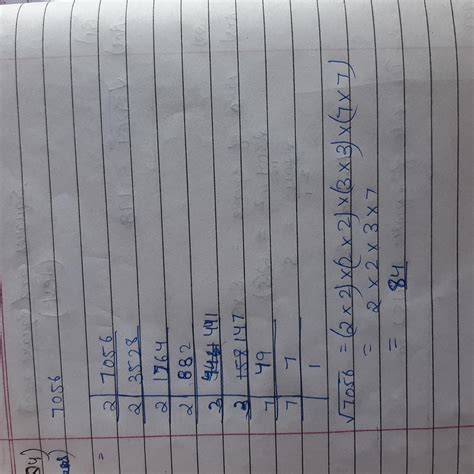 7056
=
2 7056
2 3528
2 1764
2 882
3 441
3 158 147
7 49
7 7
1
√7056 = (2×2)×(2×2)×(3×3)×(7×7)
= 2×2×3×7
= 84